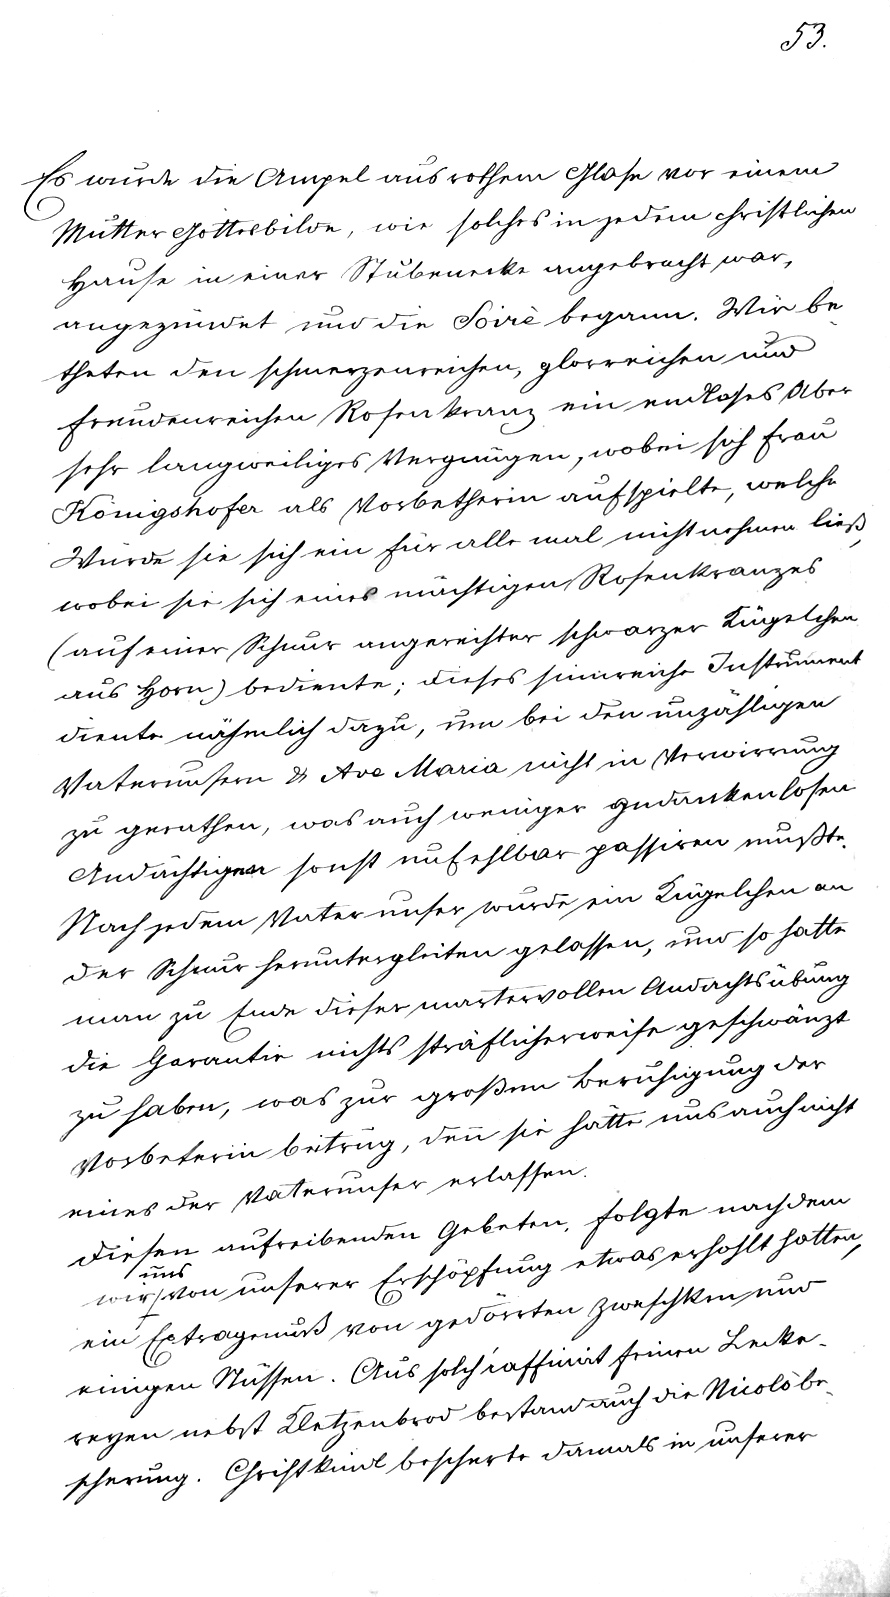 53.
Es wurde die Ampel aus rothem Glase vor einem
Mutter Gottesbilde, wie solches in jedem christlichen
Hause in einer Stubenecke angebracht war,
angezündet und die Soirè begann. Wir be
theten den schmerzenreichen, glorreichen und
freudenreichen Rosenkranz ein endloses Aber
sehr langweiliges Vergnügen, wobei sich Frau
Königshofer als Vorbetherin aufspielte, welche
Würde sie sich ein für alle mal nicht nehmen ließ,
wobei sie sich eines mächtigen Rosenkranzes
(auf einer Schnur angereihter schwarzer Kügelchen
aus Horn) bediente; dieses sinnreiche Instrument
diente nähmlich dazu, um bei den unzähligen
Vaterunsern & Ave Maria nicht in Verwirrung
zu gerathen, was auch weniger gedankenlosen
Andächtigen sonst unfehlbar passiren mußte.
Nach jedem Vater unser wurde ein Kügelchen an
der Schnur heruntergleiten gelassen, und so hatte
man zu Ende dieser martervollen Andachtsübung
die Garantie nichts sträflicherweise geschwänzt
zu haben, was zur großen Beruhigung der
Vorbeterin beitrug, den̄ sie hätte uns auch nicht
eines der Vaterunser erlassen.
Diesen aufreibenden Gebeten, folgte nachdem
uns
wir von unserer Erschöpfung etwas erhohlt hatten,
ein Extragenuß von gedörrten Zweschken und
einigen Nüssen. Aus solch' raffinirt feinen Lecke-
reyen nebst Kletzenbrod bestand auch die Nicolobe-
scherung. Christkindl bescherte damals in unserer